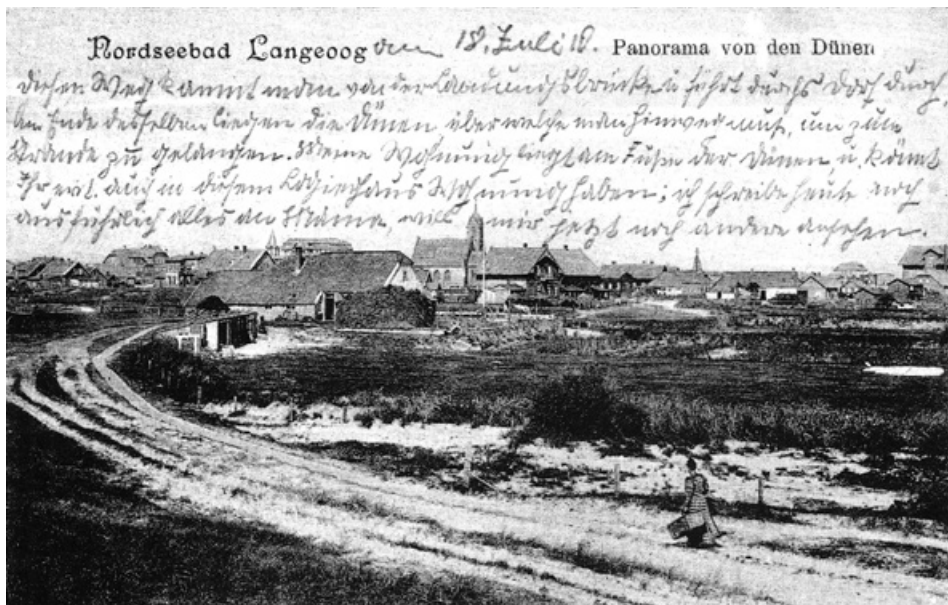 Nordseebad Langeoog den 18. Juli 10. Panorama von den Dünen
diesen Weg kommt man von der Landungsbrücke u führt durchs Dorf durch
Am Ende desselben liegen die Dünen über welche man hinweg mus, um zum
Strande zu gelangen. Meine Wohnung liegt am Fuße der Dünen, u. könnt
Ihr evt. auch in diesem Logierhaus Wohnung haben; ich schreibe heute noch
ausführlich alles an Mama, will mir jetzt noch andere ansehen.